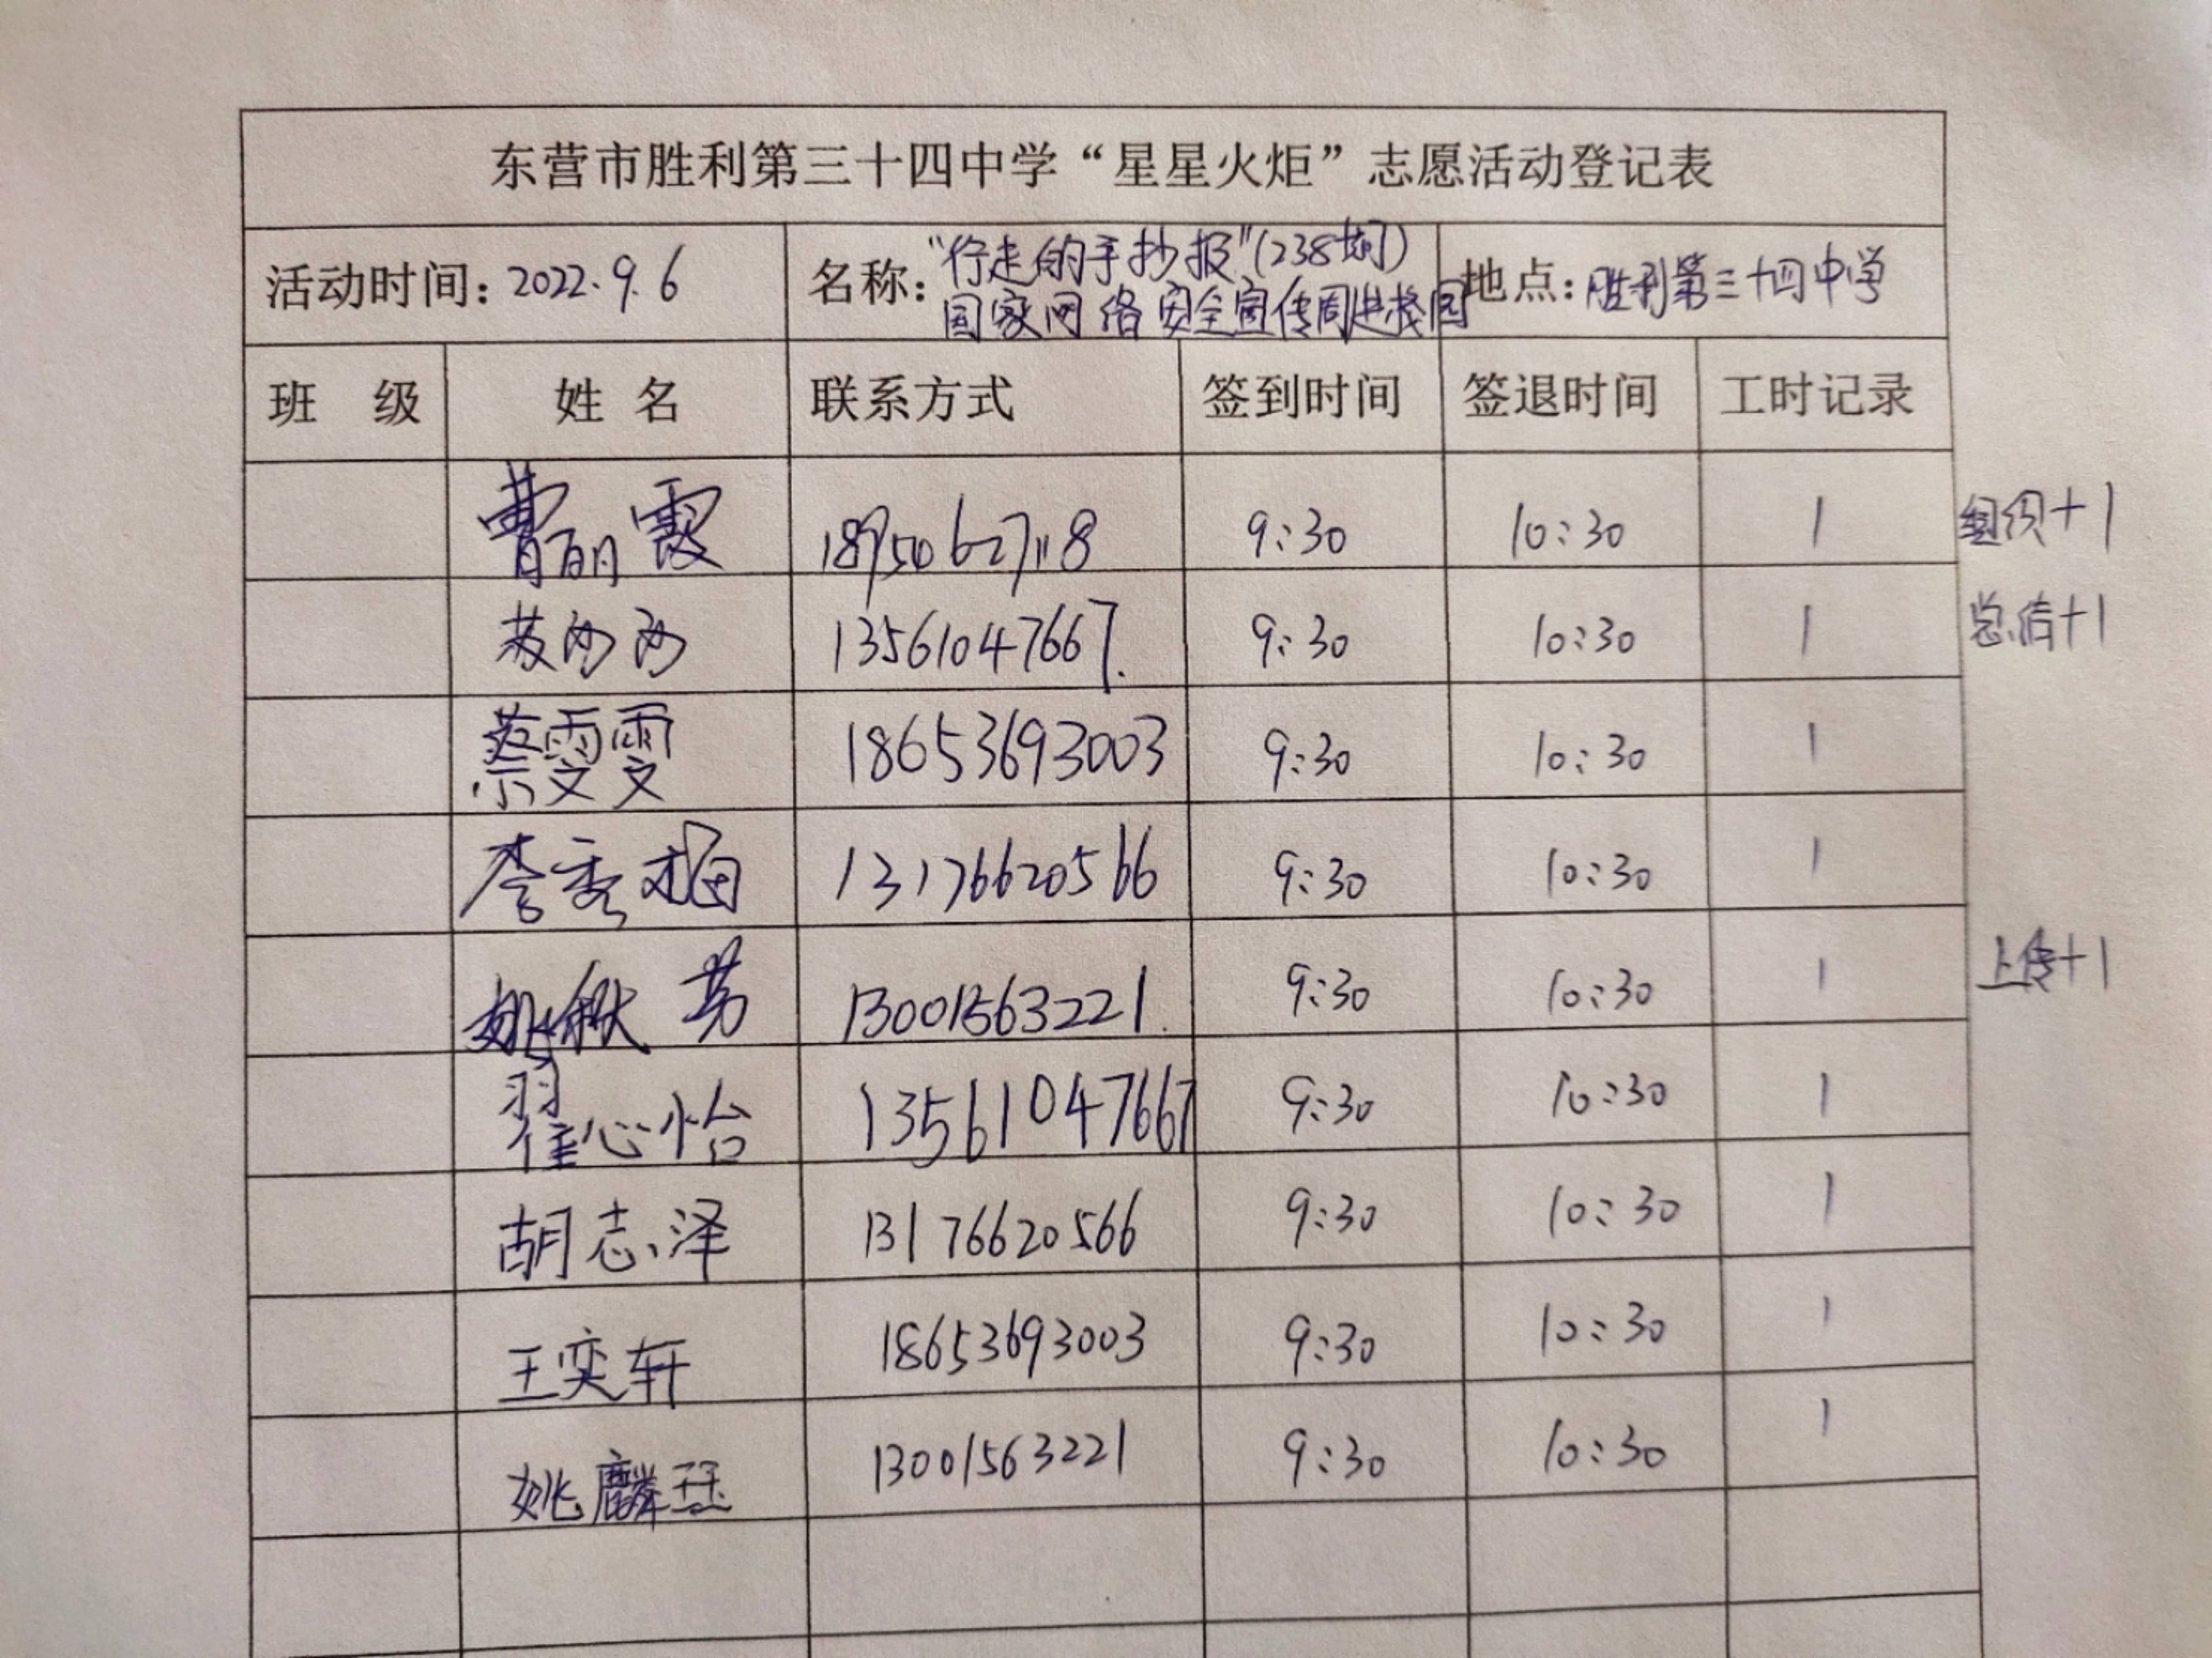 东营市胜利第三十四中学“星星火炬”志愿活动登记表
活动时间：2022.9.6 名称：“行走的手抄报”(238期) 地点：胜利第三十四中学
国家网络安全宣传周进校园
班 级 姓 名 联系方式 签到时间 签退时间 工时记录
曹丽霞 9:30 10:30 1 组织+1
苏沙沙 13561047667. 9:30 10:30 1 总结+1
蔡雯雯 18653693003 9:30 10:30 1
李秀梅 13176620566 9:30 10:30 1
姚秋芳 13001563221. 9:30 10:30 1 上传+1
翟心怡 13561047667 9:30 10:30 1
胡志泽 13176620566 9:30 10:30 1
王奕轩 18653693003 9:30 10:30 1
姚麟珏 13001563221 9:30 10:30 1